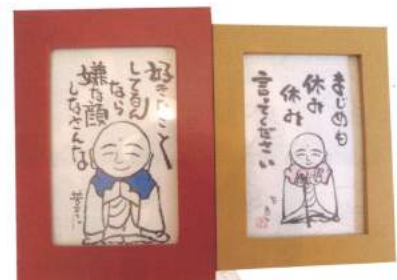 好きなこと
してるん
なら
嫌な顔
しなさんな
まじめも
休み
休み
言ってください